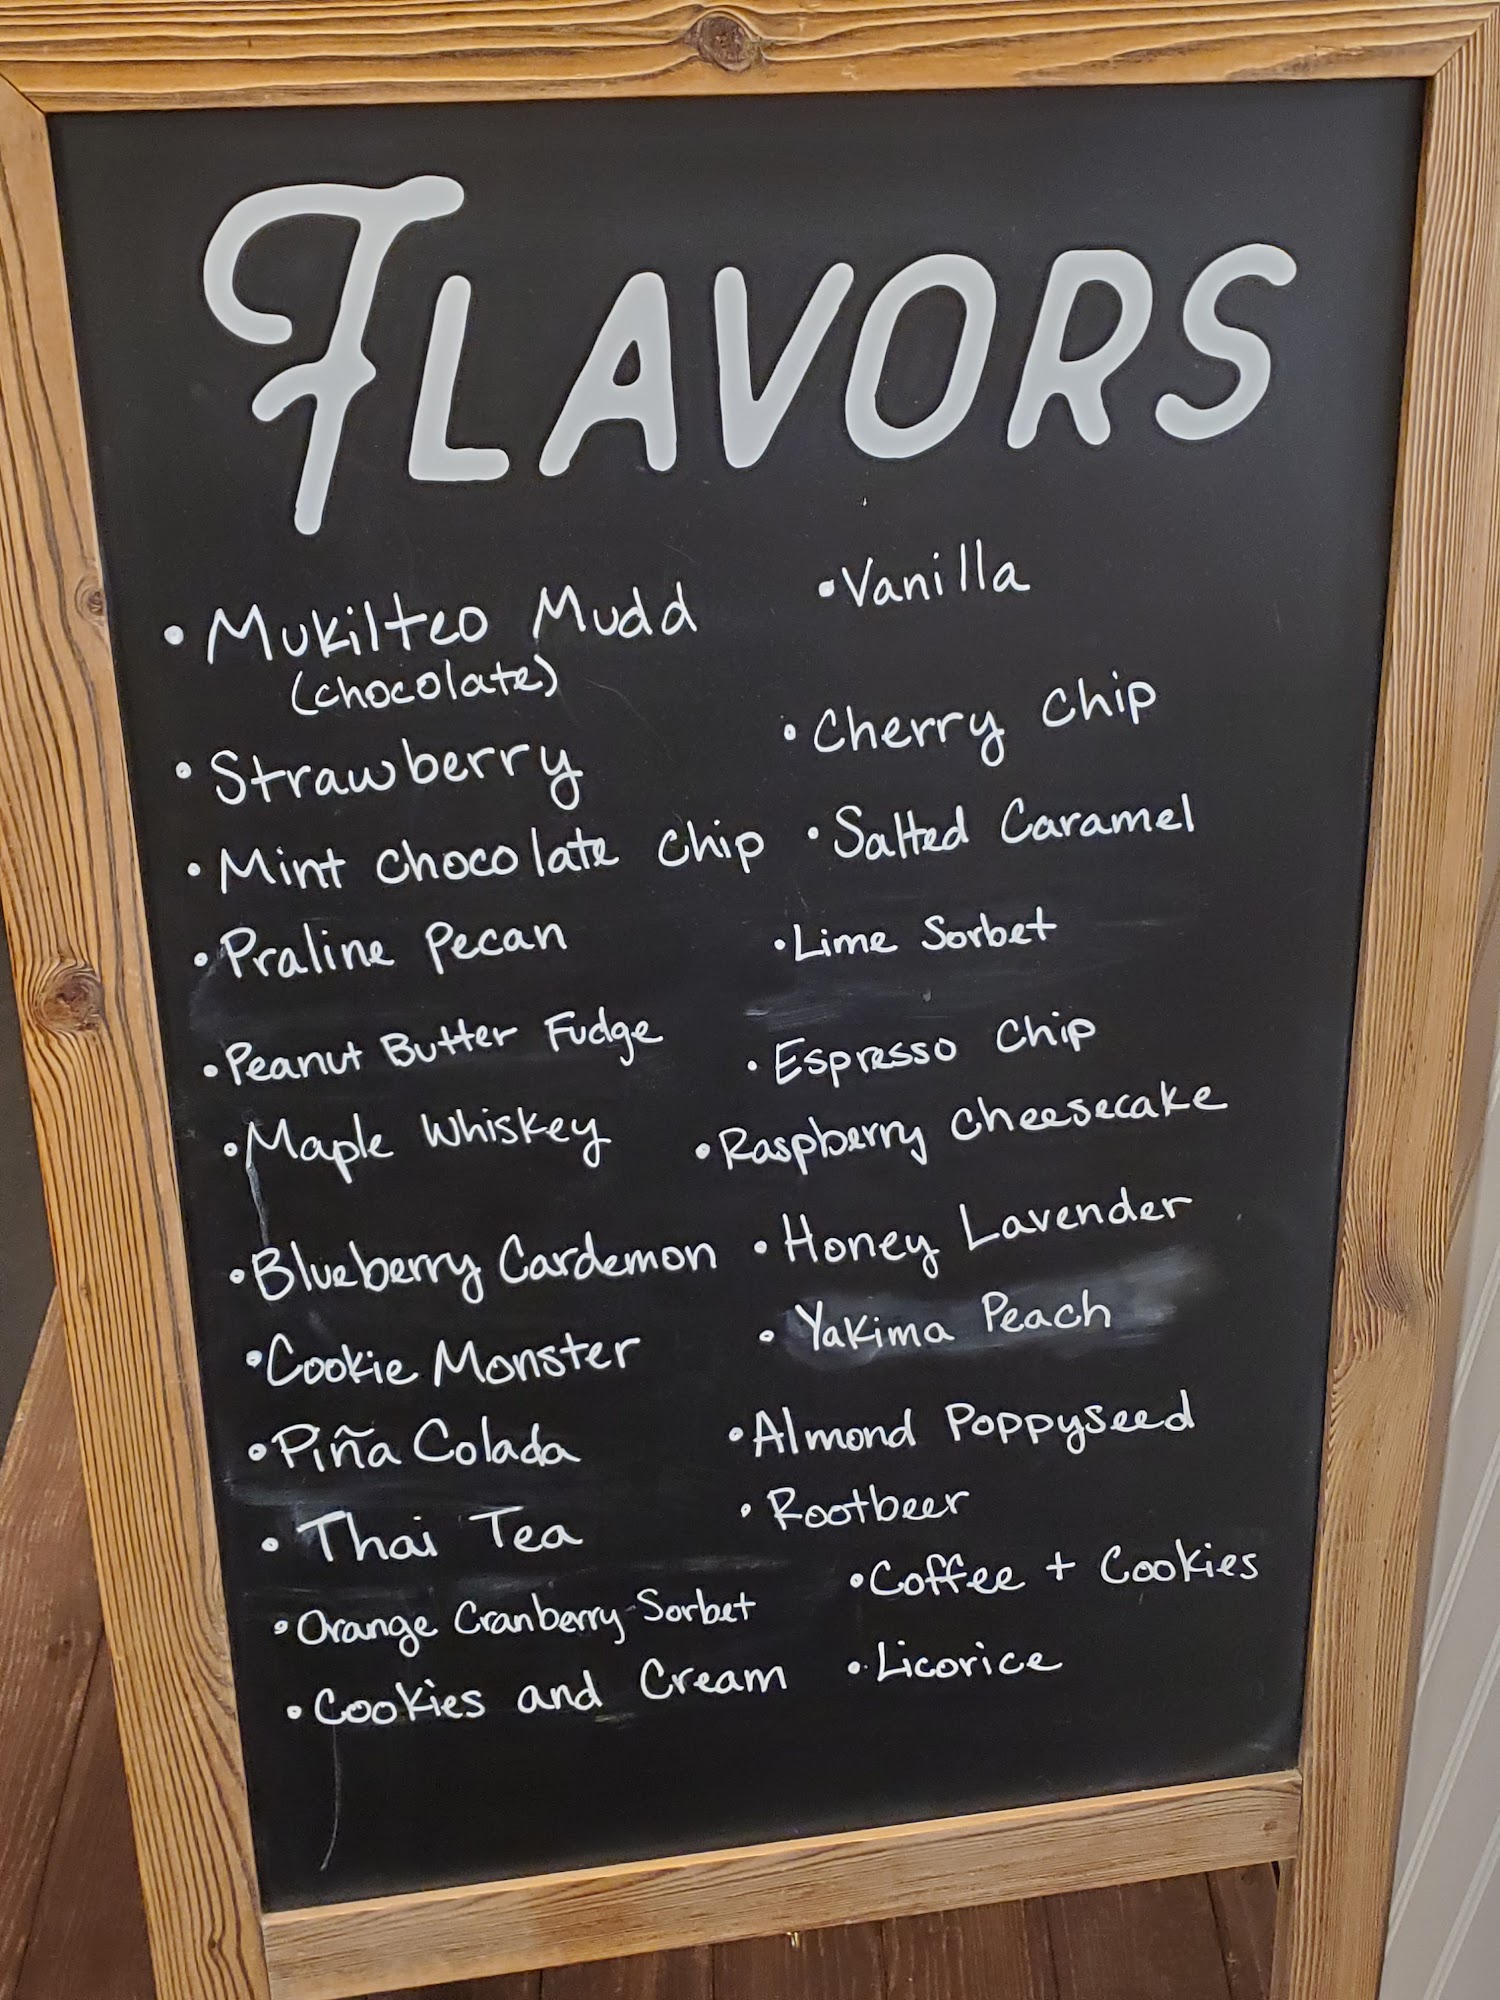 FLAVORS
• Mukilteo Mudd
(chocolate)
• Strawberry
• Mint chocolate chip
• Praline Pecan
• Peanut Butter Fudge
• Maple Whiskey
• Blueberry Cardemon
• Cookie Monster
• Piña Colada
• Thai Tea
• Orange Cranberry Sorbet
• Cookies and Cream
• Vanilla
• Cherry Chip
• Salted Caramel
• Lime Sorbet
• Espresso Chip
• Raspberry Cheesecake
• Honey Lavender
• Yakima Peach
• Almond Poppyseed
• Rootbeer
• Coffee + Cookies
• Licorice